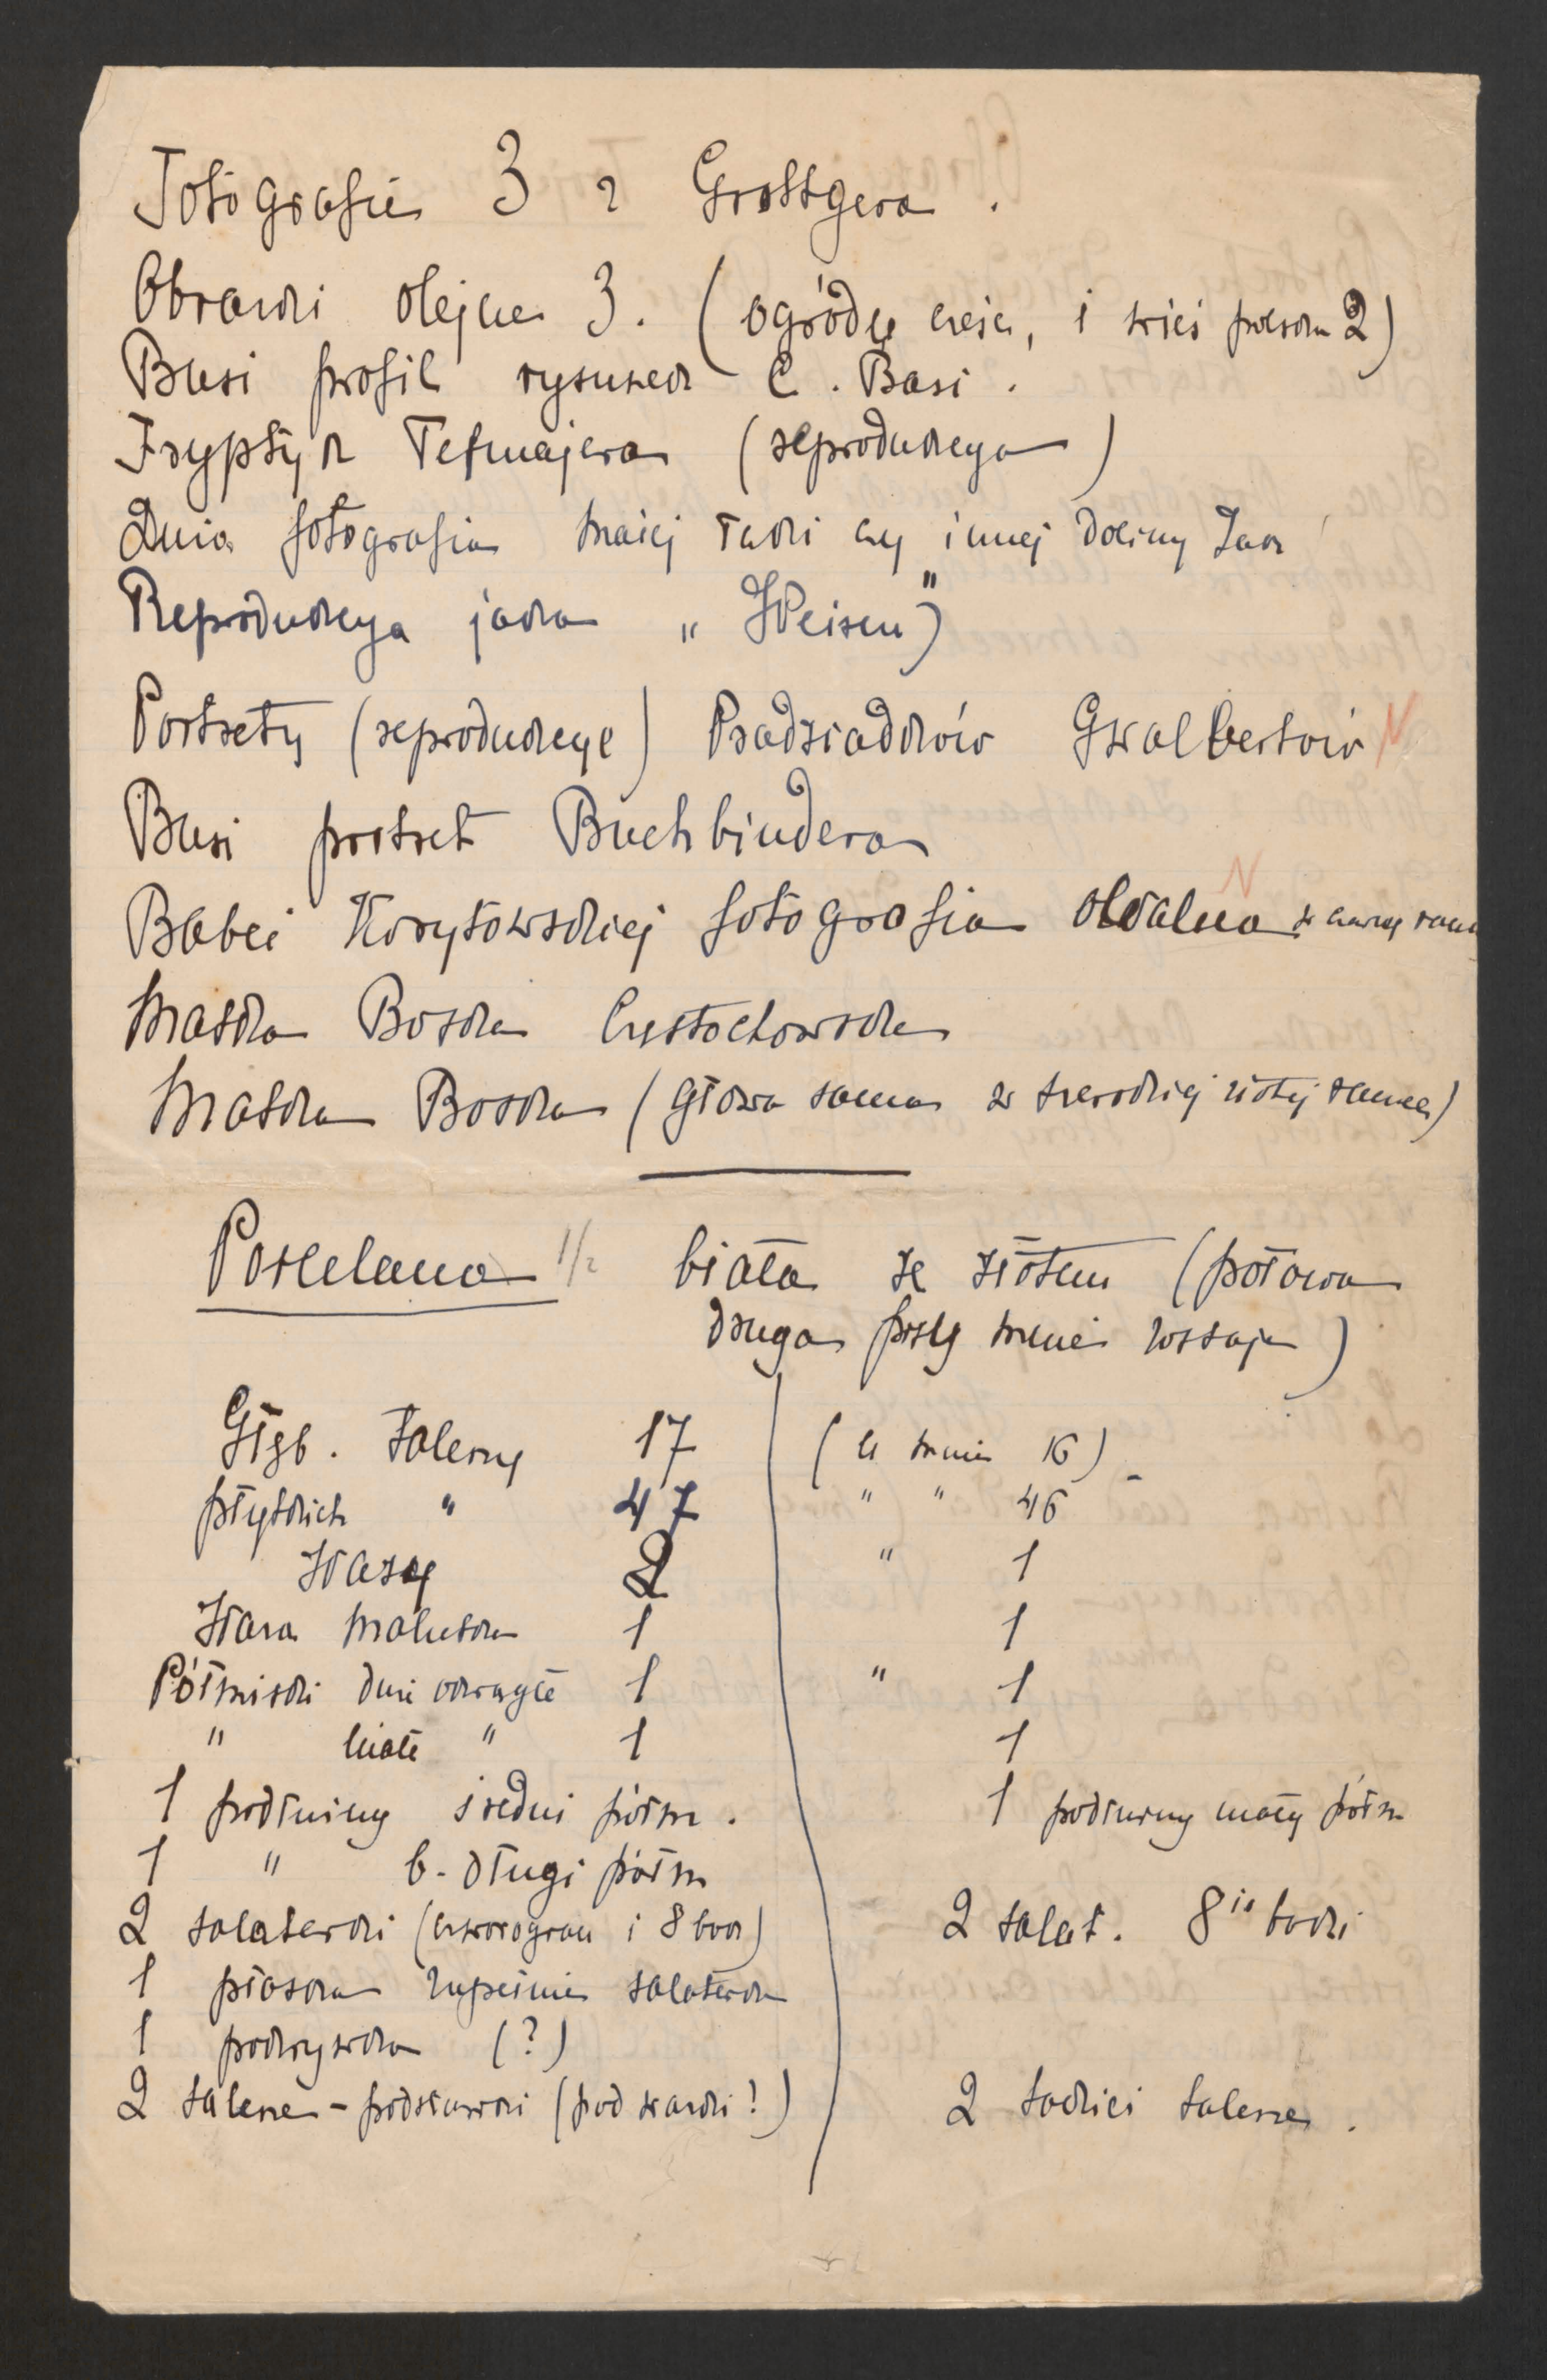 Fotografie 3 z Grottgera.
Obrazki olejne 3. (ogródu część, i wieś 2)
Busi profil rysunek C. Basi.
Tryptyk Tetmajera (reprodukcya)
Duża fotografia małej Łąki czy innej doliny Zak
Reprodukcya jaka "Weisen"
Portrety (reprodukcye) Pradziadków Gwalbertów N
Busi portret Buchbindera
Babci Korytowskiej fotografia owalna w ramy N
Matka Boska Częstochowska
Matka Boska (głowa sama w szerokiej złotej ramce)
Porcelana 1/2 biała ze złotem (połowa
druga przy mnie zostaje)
Głęb. talerzy 17 (u mnie 16)
płytkich " 47 " " 46
Wazy 2 " 1
Waza malutka 1 1
Półmiski duże okrągłe 1 " 1
" małe " 1 1
1 podłużny średni półm. 1 podłużny mały półm
1 " b. długi półm
2 salaterki (czworogran i 8 bok) 2 salat. 8io boki
1 płaska zupełnie salaterka
1 pokrywka (?)
2 talerze - podstawki (pod wazki!) 2 takież talerze.